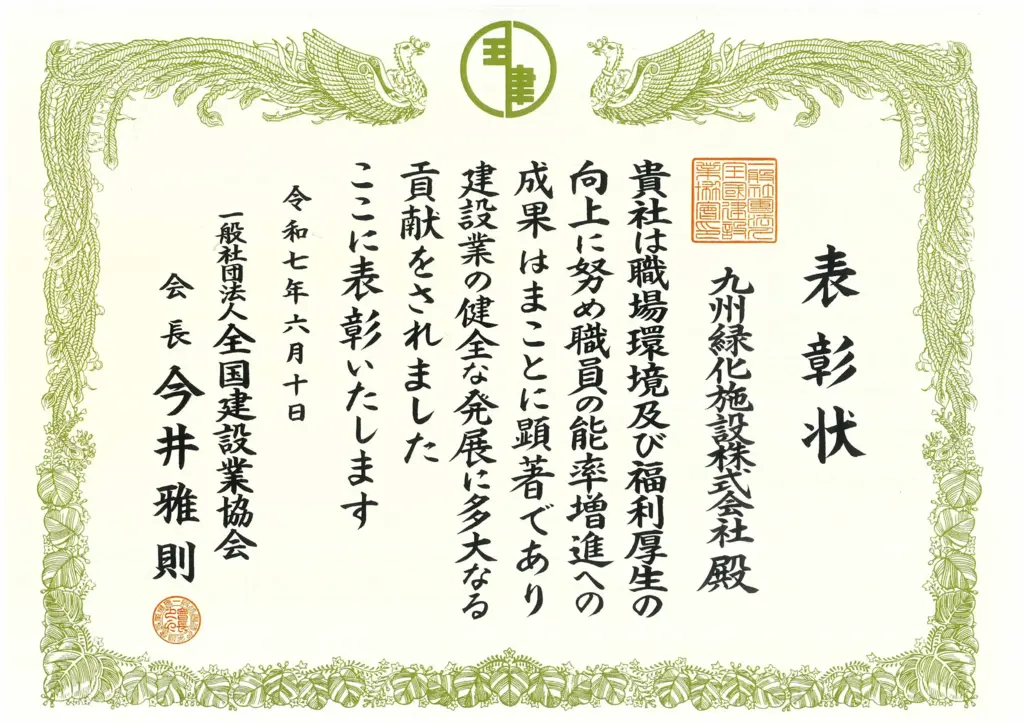 全建
表彰状
九州緑化施設株式会社 殿
貴社は職場環境及び福利厚生の
向上に努め職員の能率増進への
成果はまことに顕著であり
建設業の健全な発展に多大なる
貢献をされました
ここに表彰いたします
令和七年六月十日
一般社団法人全国建設業協会
会長 今井雅則